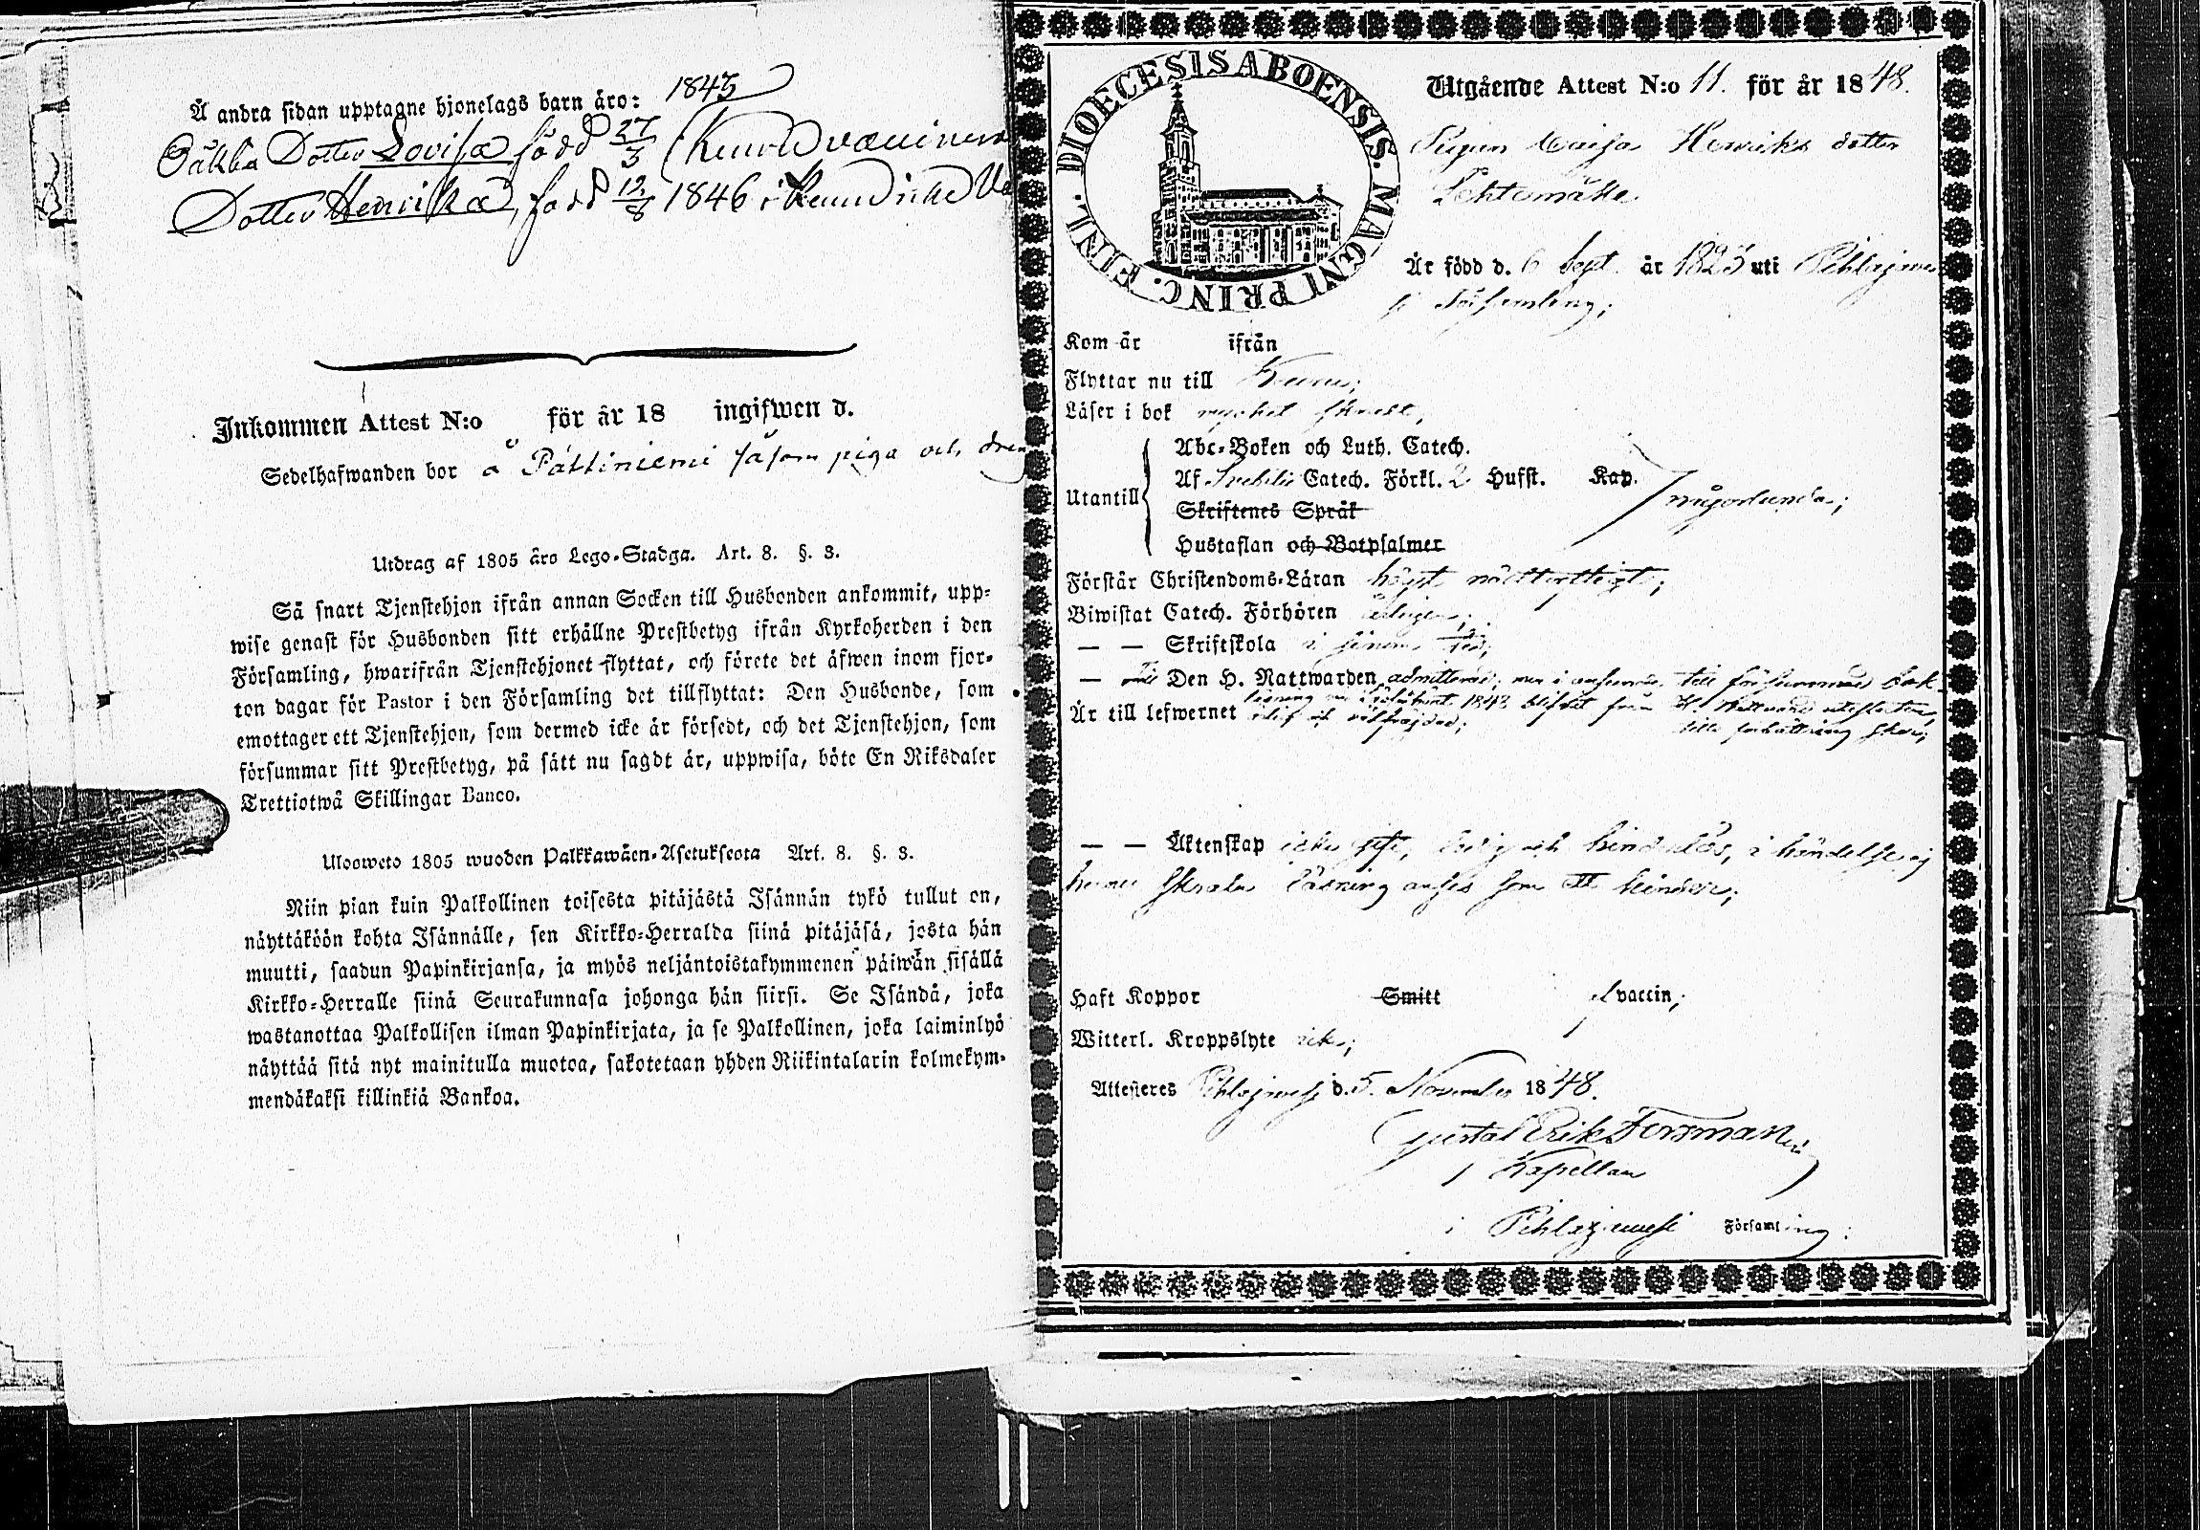 Å andra sidan upptagne hjonelags barn äro: 1845
Dotter Lovisa född 27/3
Dotter Henrika, född 12/8 1846 i
Inkommen Attest N:o för år 18 ingifwen d.
Sedelhafwanden bor å Påttiniemi såsom piga och
Utdrag af 1805 års Lego-Stadga. Art. 8. §. 3.
Så snart Tjenstehjon ifrån annan Socken till Husbonden ankommit, upp-
wise genast för Husbonden sitt erhållne Prestbetyg ifrån Kyrkoherden i den
Församling, hwarifrån Tjenstehjonet flyttat, och förete det äfwen inom fjor-
ton dagar för Pastor i den Församling det tillflyttat: Den Husbonde, som
emottager ett Tjenstehjon, som dermed icke är försedt, och det Tjenstehjon, som
försummar sitt Prestbetyg, på sätt nu sagdt är, uppwisa, böte En Riksdaler
Trettiotwå Skillingar Banco.
Ulosweto 1805 wuoden Palkkawäen-Asetuksesta Art. 8. §. 3.
Niin pian kuin Palkollinen toisesta pitäjästä Isännän tykö tullut on,
näyttäköön kohta Isännälle, sen Kirkko-Herralda siinä pitäjäsä, josta hän
muutti, saadun Papinkirjansa, ja myös neljäntoistakymmenen päiwän sisällä
Kirkko-Herralle siinä Seurakunnasa johonga hän siirsi. Se Isändä, joka
wastanottaa Palkollisen ilman Papinkirjata, ja se Palkollinen, joka laiminlyö
näyttää sitä nyt mainitulla muotoa, sakotetaan yhden Riikintalarin kolmekym-
mendäkaksi killinkiä Bankoa.
DIOECESIS ABOENSIS. MAGNI PRINC. FINL.
Utgående Attest N:o 11. för år 1848.
Pigan Caisa Henriks dotter
Lehtomäke
Är född d. 6 Sept. år 1825 uti Pihlajawe
si Församling;
Kom år ifrån
Flyttar nu till Kuru;
Läser i bok mycket
Abc-Boken och Luth. Catech.
Utantill Af Svebilii Catech. Förkl. 2 Hufst. Kap.
Skriftenes Språk någorlunda;
Hustaflan och Botpsalmer
Förstår Christendoms-Läran högst nödtorftigt;
Biwistat Catech. Förhören årligen;
— — Skriftskola i sinom tid;
— Till Den H. Nattwarden admitterad; men i anseende till försummad bok-
Är till lefwernet
till förbättring sker;
— — Äktenskap icke gift, ledig och hinderlös, i händelse ej
hennes läsning anses som ett hinder;
Haft Koppor Smitt vaccin;
Witterl. Kroppslyte icke;
Attesteres Pihlajawesi d. 5. November 1848.
Gustaf Erik Forsman
Kapellan
i Pihlajawesi Församling: